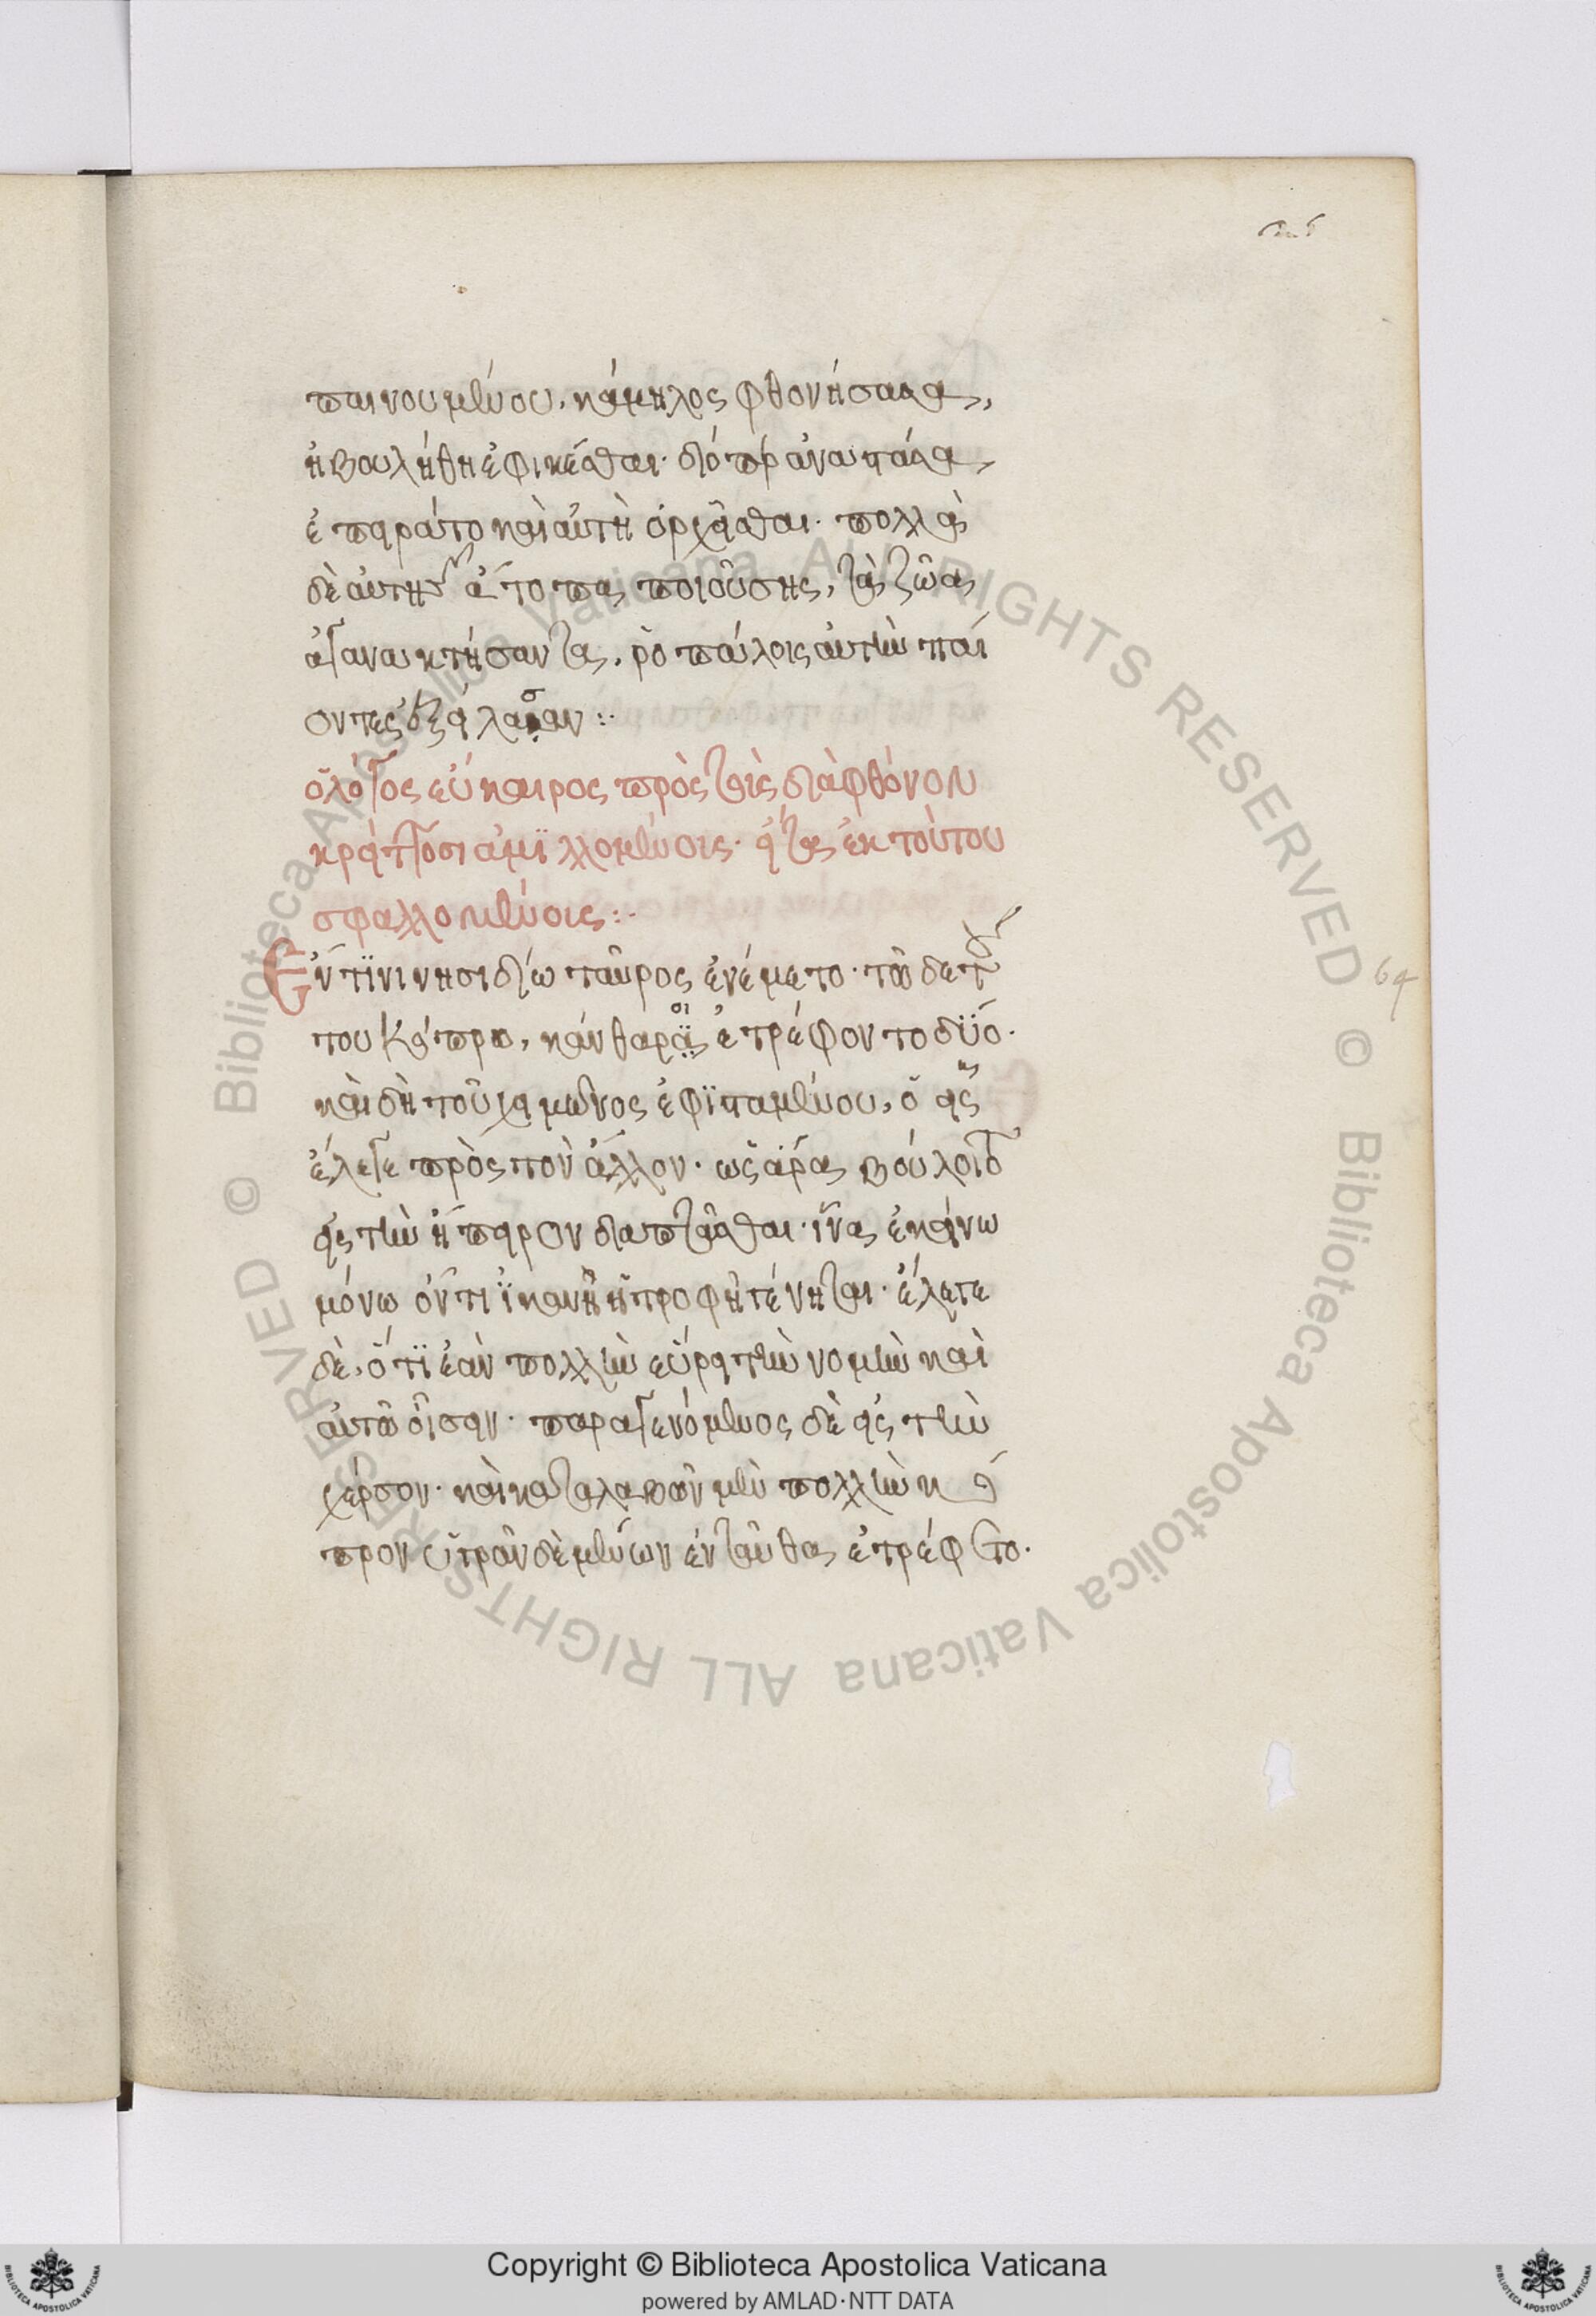 παινουμένου. κάμηλος φθονήσασα,
ἠβουλήθη ἐφικέσθαι. διόπερ ἀναστάσα,
ἐπειράτο καὶ αὐτὴ ὀρχεῖσθαι. πολλὰ
δὲ αὐτῆς ἄτοπα ποιούσης, τὰ ζῶα
ἀγανακτήσαντα, ῥοπάλοις αὐτὴν παί
οντες ἐξήλασαν :
ὁ λόγος εὔκαιρος πρὸς τοὺς διὰ φθόνον
κρείττοσι ἁμιλλομένοις. εἶτα ἐκ τούτου
σφαλλομένοις :
Ἔν τινι νησιδίω ταῦρος ἐνέμετο. τῶ δὲ τού
του κόπρω, κάνθαροι ἐτρέφοντο δύο.
καὶ δὴ τοῦ χειμῶνος ἐφισταμένου, ὁ εἷς
ἔλεγε πρὸς τὸν ἄλλον. ὡς ἄρα βούλοιτο
εἰς τὴν ἤπειρον διαπτᾶσθαι. ἵνα ἐκείνω
μόνω ὄντι ἱκανὴ ἡ τροφὴ γένηται. ἔλεγε
δὲ, ὅτι ἐὰν πολλὴν εὕρη τὴν νομὴν καὶ
αὐτῶ οἴσειν. παραγενόμενος δὲ εἰς τὴν
χέρσον. καὶ καταλαβὼν μὲν πολλὴν κό
προν ὑγρὰν δὲ μένων ἐνταῦθα ἐτρέφετο.
64
Copyright © Biblioteca Apostolica Vaticana
powered by AMLAD·NTT DATA